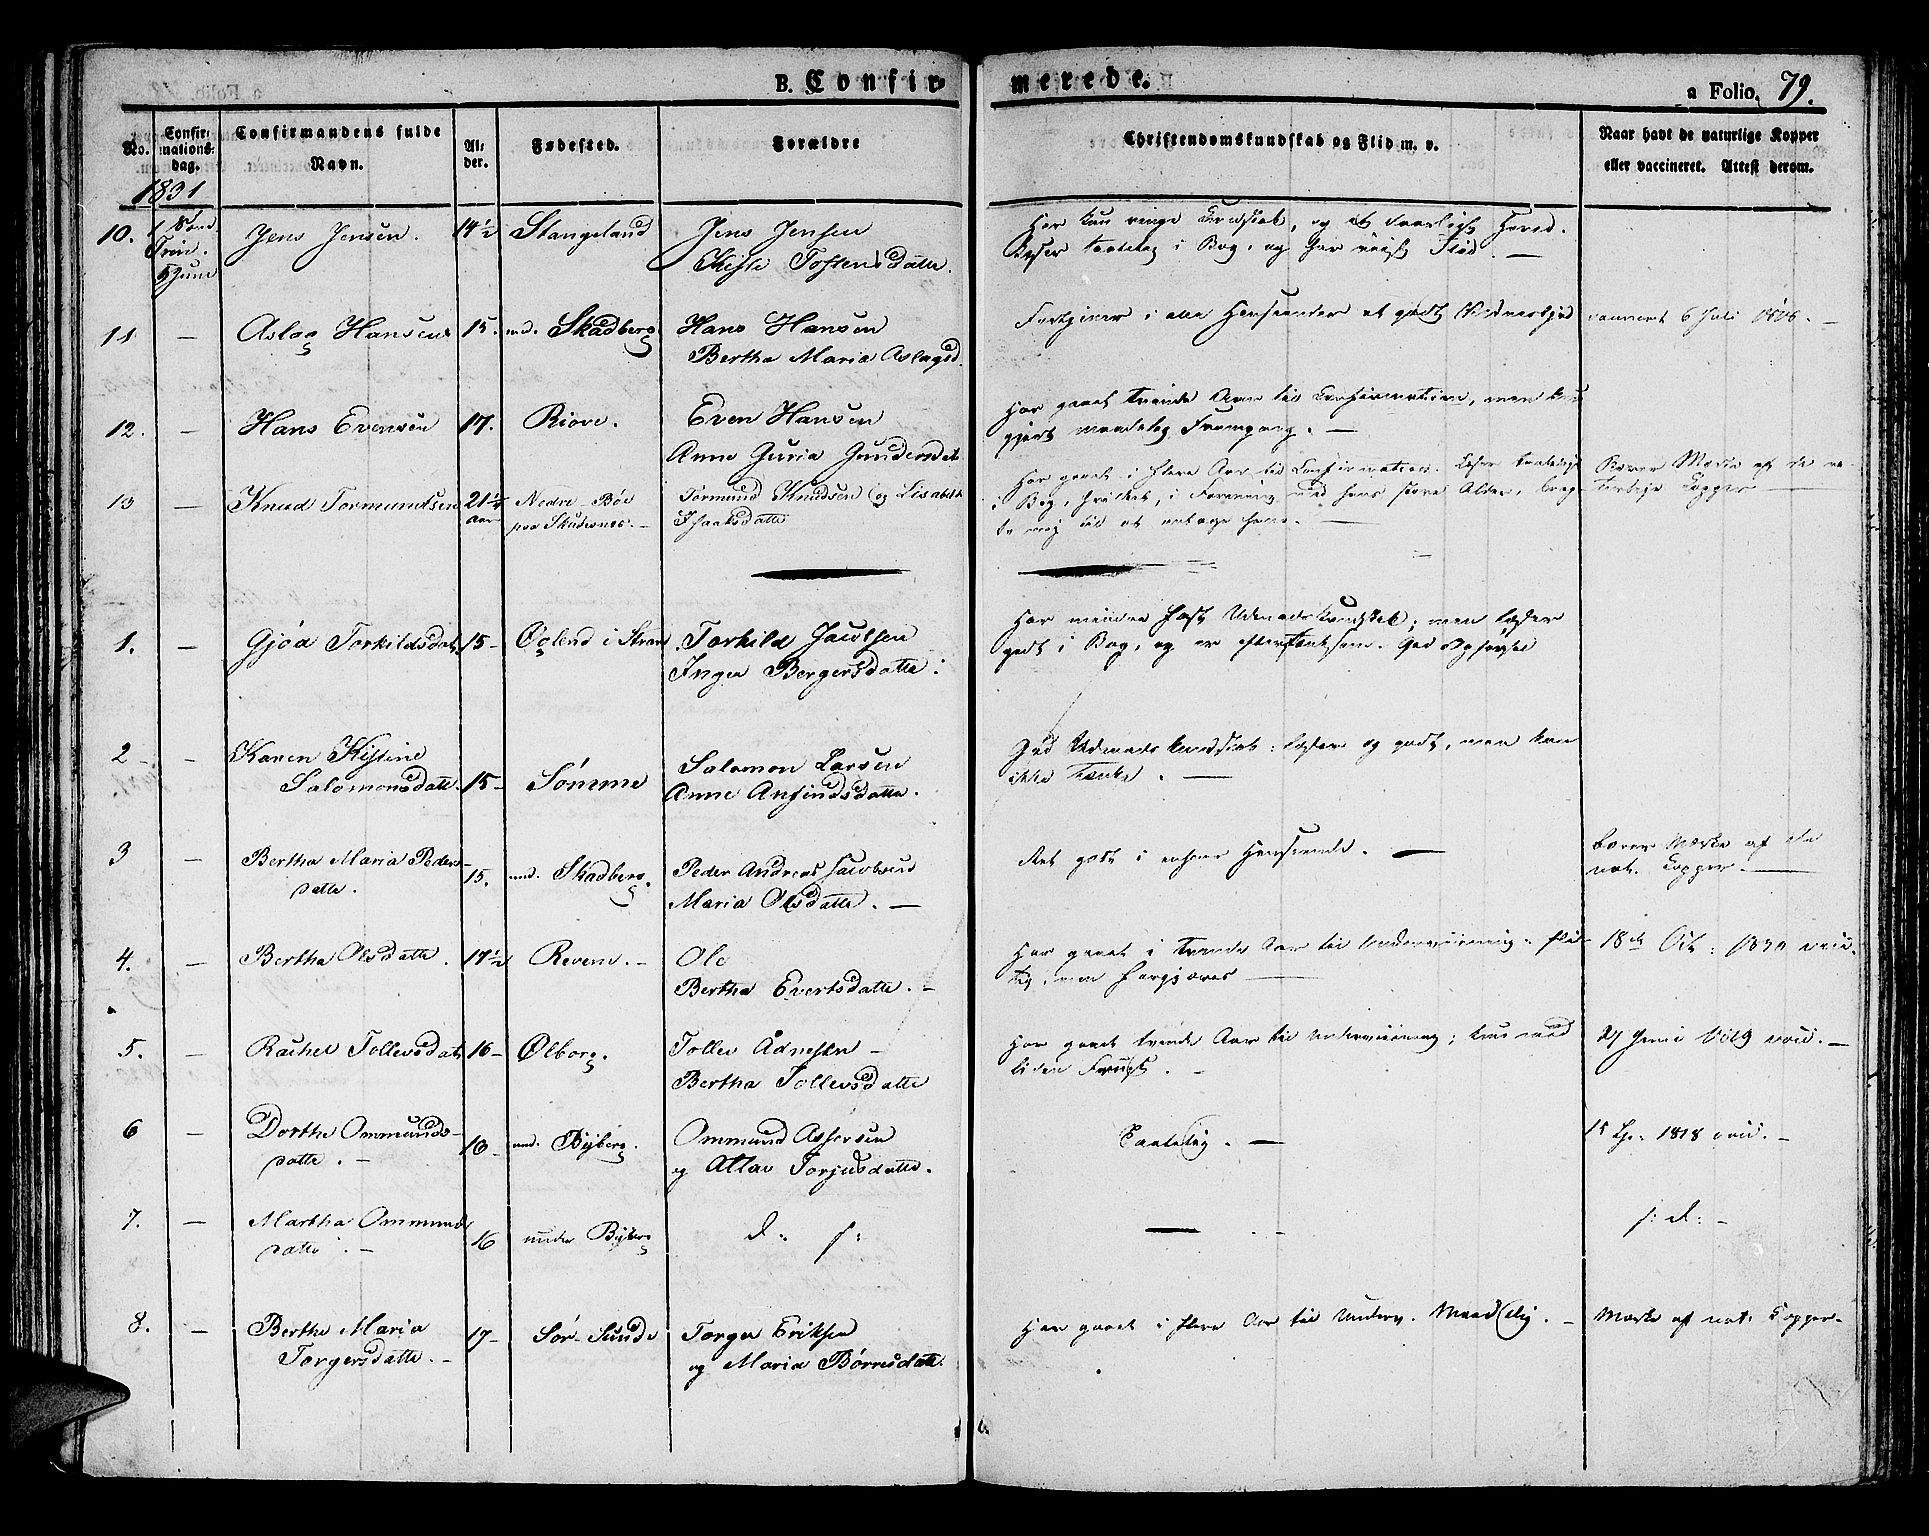 B. Confirmerede.
a Folio. 79.
No.
Confirmationsdag.
Confirmandens fulde Navn.
Alder.
Fødested.
Forældre
Christendomskundskab og Flid m. v.
Naar havt de naturlige Kopper eller vaccineret. Attest derom.
1831
10. 1 Sønd Trin. 5 Juni Jens Jensen. 14½ Stangeland Jens Jensen
Tostensdatter.
Har kun ringe Kundskab, og et Herred.
Læser taalelig i Bog, og har Flid. —
11 — Aslag Hansen 15. md. Skadberg Hans Hansen
Bertha Maria Aslagsd.
Fortjener i alle Henseender et godt Vidnesbyrd
vaccineret 6 Juli 1818. —
12. — Hans Evensen 17. Riove. Even Hansen
Anna Guria Gundersdat.
Har gaaet tvende Aar til Confirmation, men kun
gjort maadelig Fremgang. —
13 — Knud Tormundsen 21¼ aar Nedre Bøe paa Skudesnes. — Tormund Knudsen og Lisabeth
Isaaksdatter
Har gaaet i flere Aar til Confirmation. Læser taalelig
i Bog, hvilket, i Forening med hans store Alder, bragte
mig til at antage ham. —
Bærer Mærke af de naturlige
Kopper —
1. — Gjød Torkildsdat. 15 — Øglend i Stran Torkild Jacobsen
Inger Bergersdatter.
Har mindre fast Udenadskundskab; men læser
godt i Bog, og er eftertænksom. God Opførsel
2 — — Karen Kistine
Salomonsdatter. 15 — Sømme Salomon Larsen
Anne Anfindsdatter.
God Udenadskundskab: læser og godt, men kan
ikke tænke. —
3 — Bertha Maria Peders-
datter. 15. md. Skadberg. Peder Andreas Jacobsen
Maria Olsdatter. —
Ret godt i enhver Henseende. —
bærer Mærke af de
nat. Kopper. —
4. — Bertha Olsdatter. 17½ Revem. — Ole
Bertha Evertsdatter. —
Har gaaet i tvende Aar til Underviisning: flittig
, men forgjæves —
18de Oct: 1830 vacc.
5. — Rachel Tollevsdat. 16 — Ølborg. Tollev Ådnesen —
Bertha Tollevsdatter
Har gaaet tvende Aar til Underviisning; kun med
liden Frugt. —
27 Juni 1819 vacc. —
6 — Dorthe Ommunds-
datter. — 18 — md. Byberg. Ommund Assersen
og Atlav Torjusdatter.
Taalelig. —
15 1818 vacc. —
7. — Martha Ommunds
datter. — 16 under Byberg d. s:
— —
s: d: —
8. — Berthe Maria
Torgersdatter. — 17 — Sør Sunde Torger Eriksen
og Maria Børresdatter.
Har gaaet i flere Aar til Underv. Maadelig. —
Mærke af nat: Kopper —